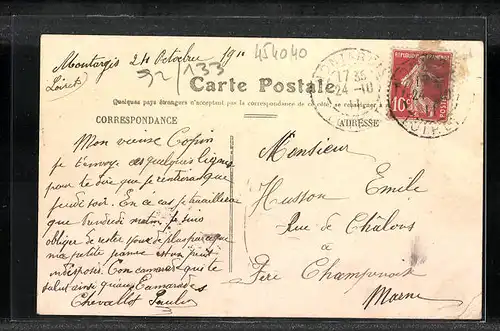 Montargis 24 Octobre 191
(Loiret)
92/133
454040
Carte Postale
Quelques pays étrangers n'acceptent pas la correspondance de ce côté, se renseigner
CORRESPONDANCE
ADRESSE
17 35
24-10
REPUBLIQUE FRANÇAISE
10c
POSTES
LOIRET
Mon vieux Copin
je t'envoye ces quelques lignes
pour te dire que je rentierai que
jeudi soir. En ce cas je travillerai
que Vendredi matin je suis
oblige de rester jour de plus parceque
ma petite est un peut
indisposé. Ton camarade qui te
salut ainsi que Camarades
Chevallot
Monsieur
Husson Emile
Rue de Châlons
à
Fère Champenoise
Marne